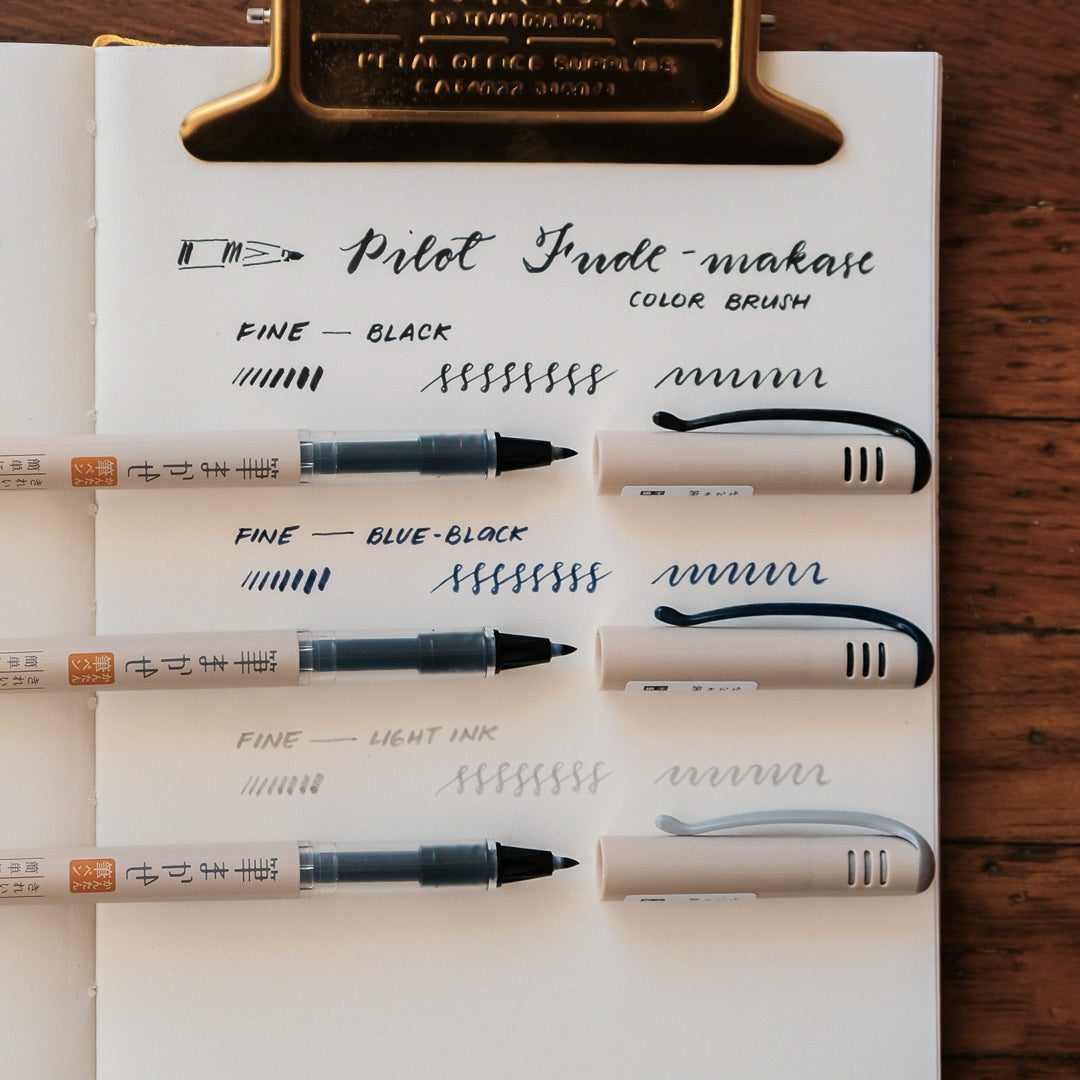 BY TEAM
METAL OFFICE SUPPLIES
Pilot Fude-makase
COLOR BRUSH
FINE — BLACK
筆まかせ
かんたん
筆ペン
簡単に
きれい
FINE — BLUE-BLACK
筆まかせ
かんたん
筆ペン
簡単に
きれい
FINE — LIGHT INK
筆まかせ
かんたん
筆ペン
簡単に
きれい